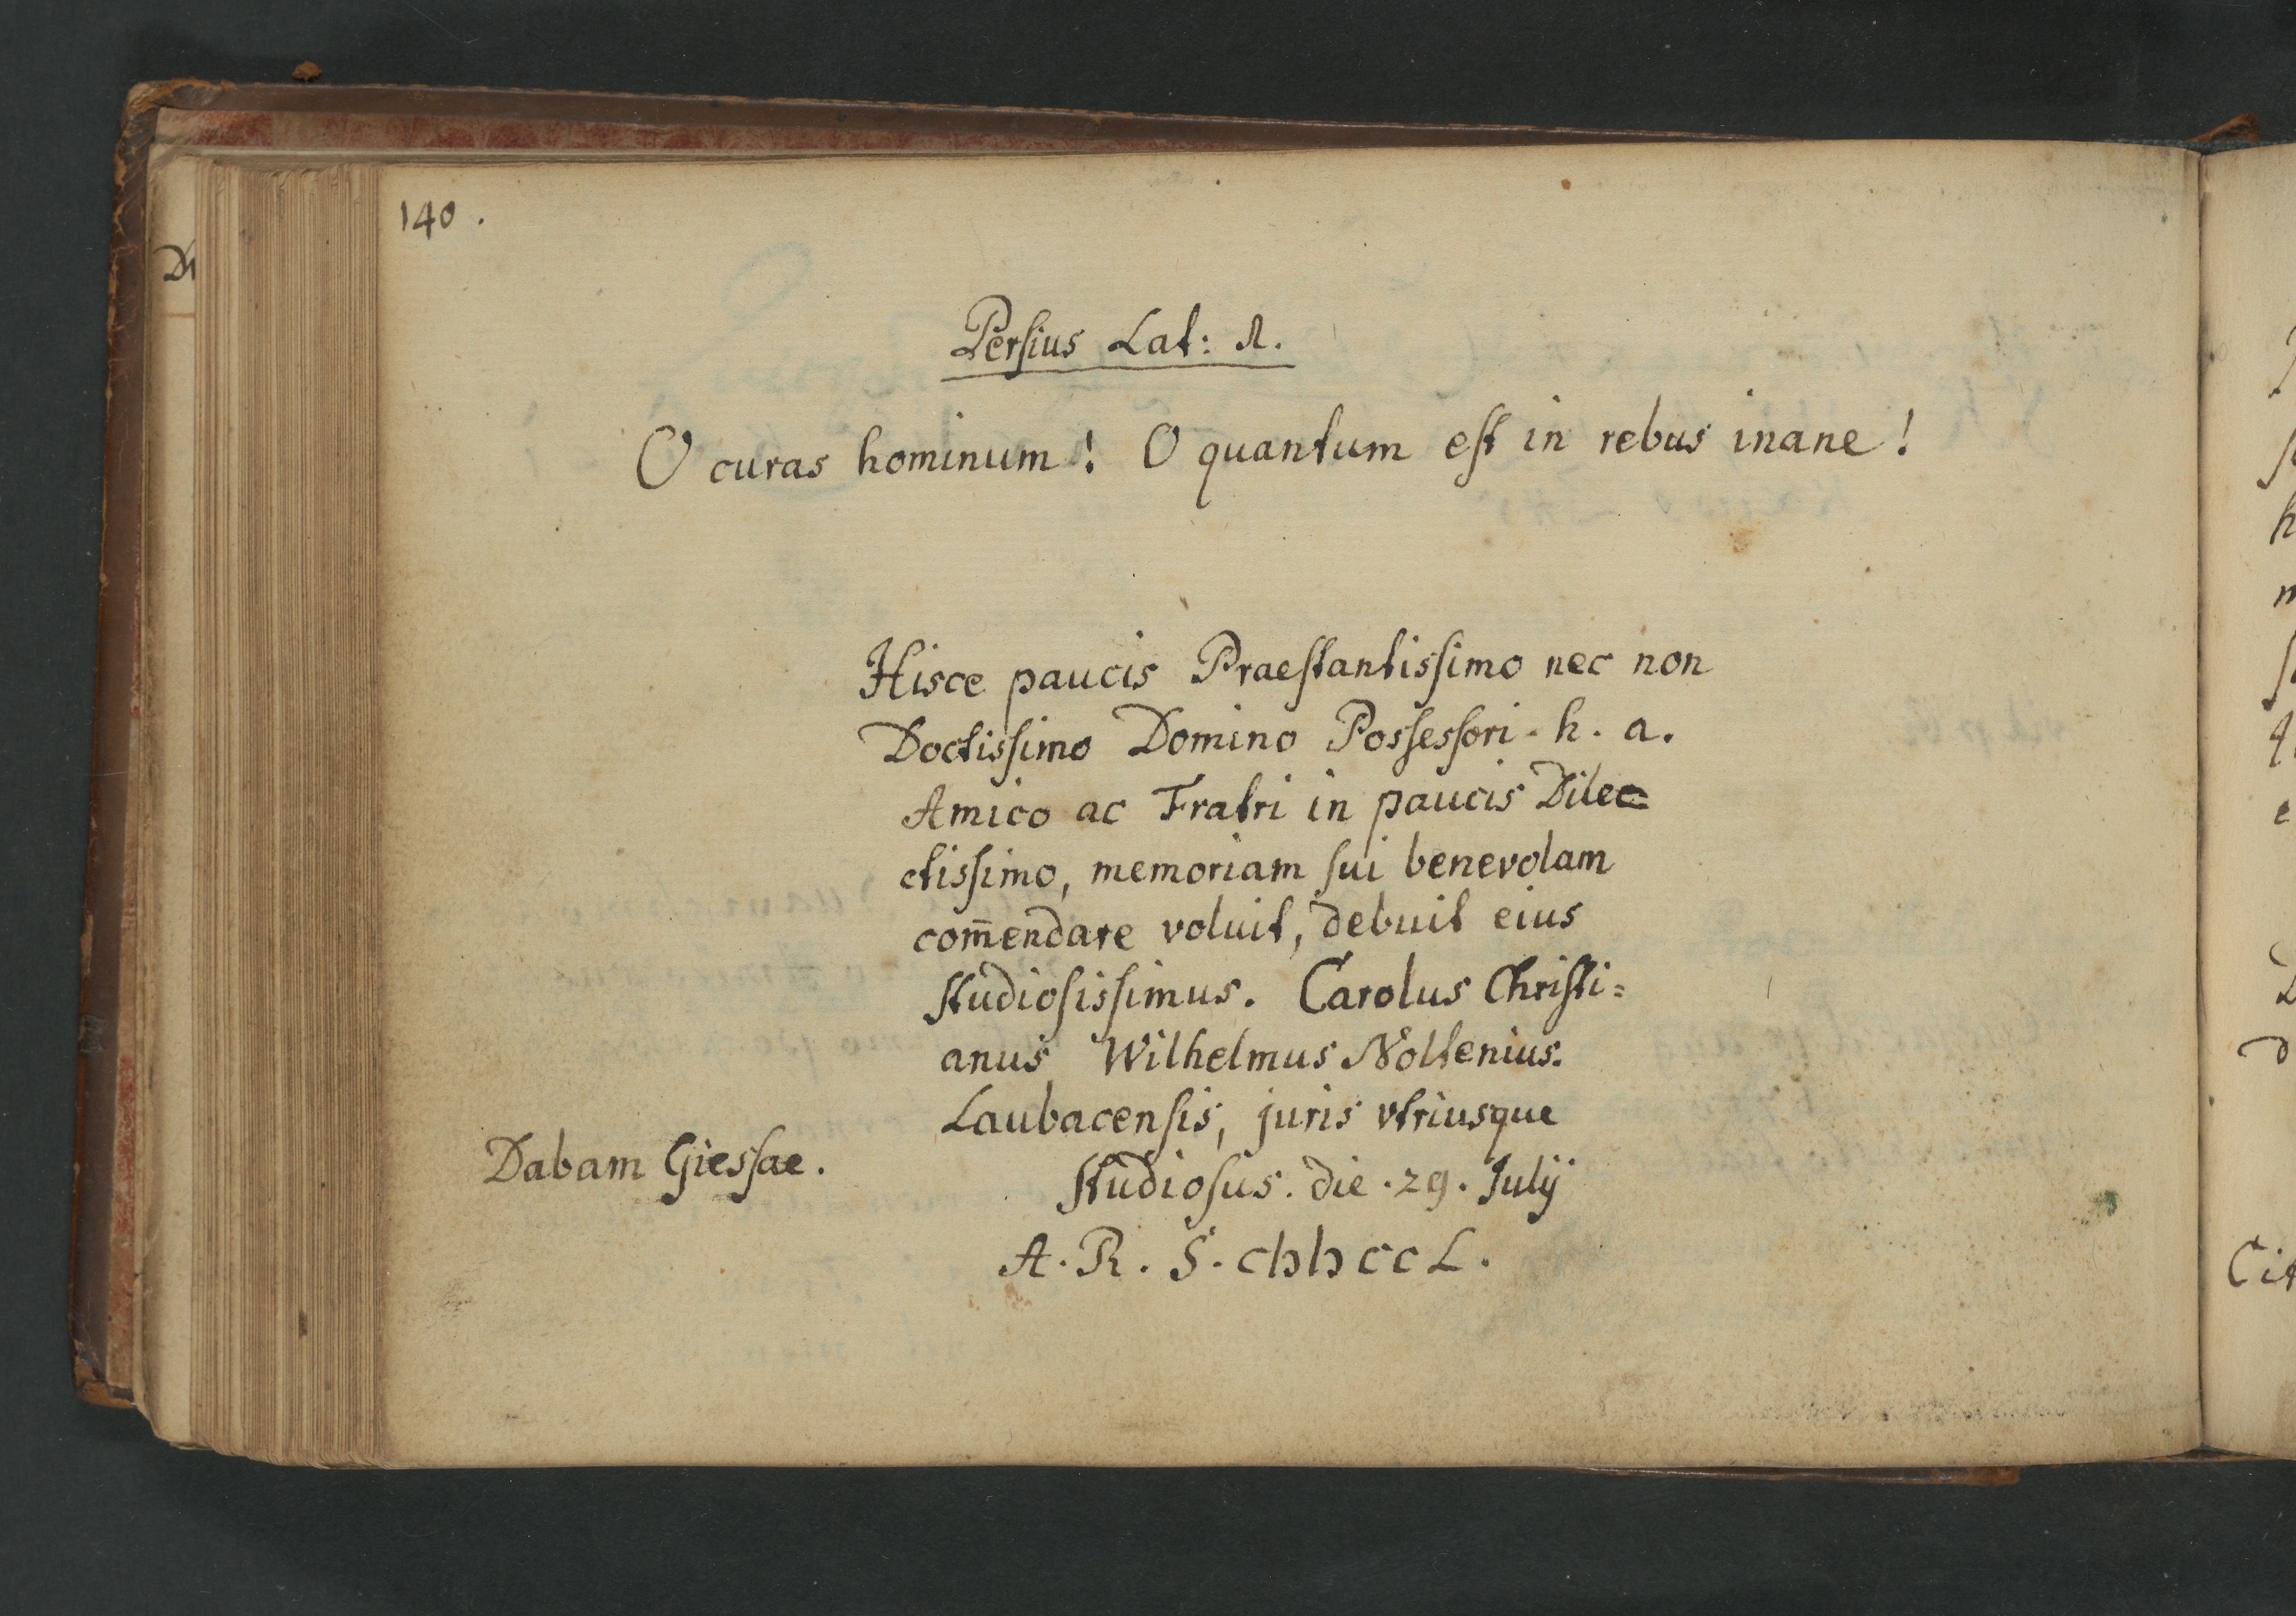 140.
Persius Sat: 1.
O curas hominum! O quantum est in rebus inane!
Hisce paucis Praestantissimo nec non
Doctissimo Domino Possessori. h. a.
Amico ac Fratri in paucis Dilec=
ctissimo, memoriam sui benevolam
com̄endare voluit, debuit eius
studiosissimus. Carolus Christi=
anus Wilhelmus Noltenius.
Laubacensis, juris vtriusque
Dabam Giessae.
Studiosus. die. 29. Julij
A. R. S. cIↄIↄccL.